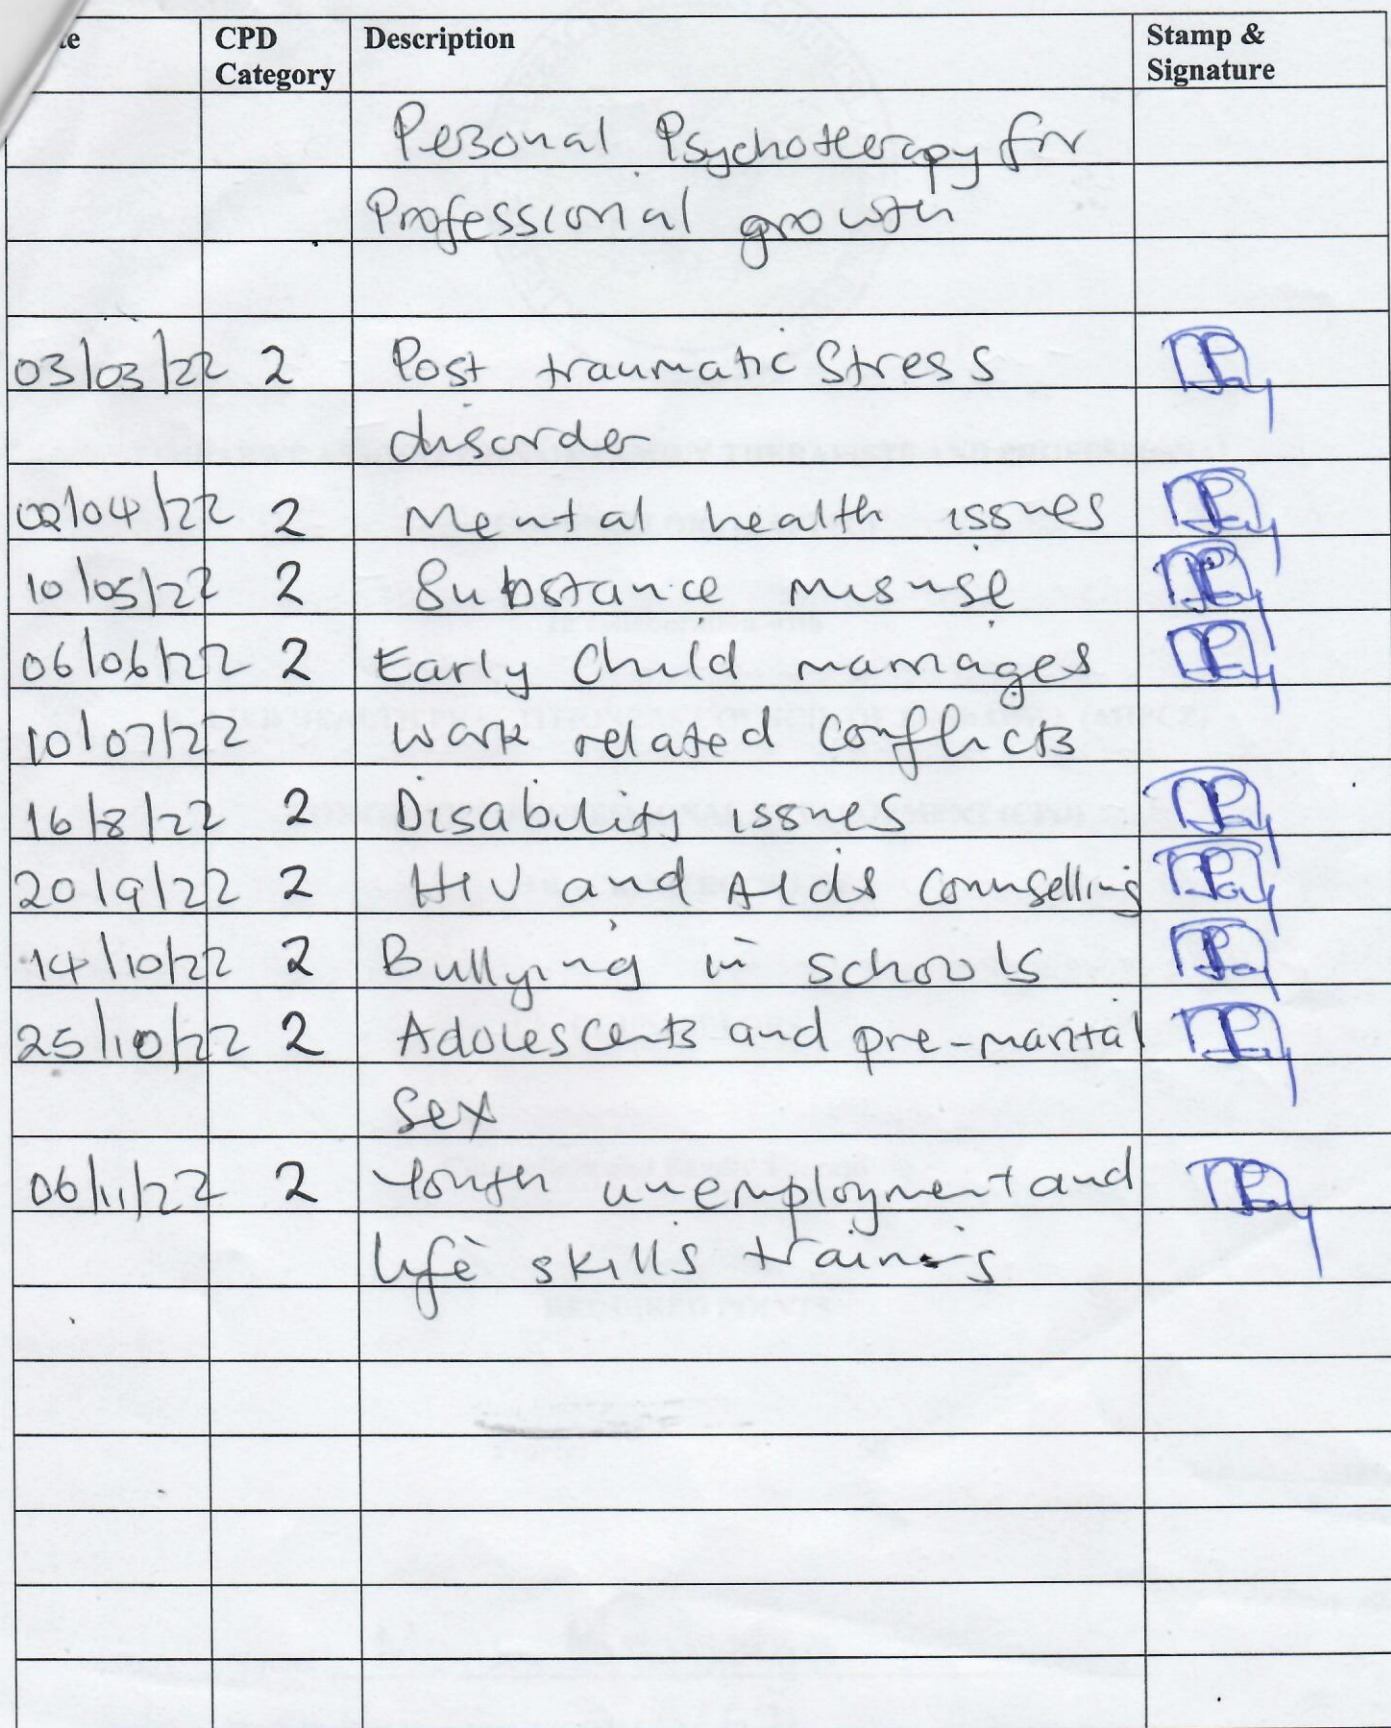 te CPD Description Stamp &
Category Signature
Pesonal Psychotherapy for
Professional growth
03/03/22 2 Post traumatic Stress
disorder
02/04/22 2 Mental health issues
10/05/22 2 Substance misuse
06/06/22 2 Early Child marriages
10/07/22 work related conflicts
16/8/22 2 Disability issues
20/9/22 2 HIV and AIds Counselling
14/10/22 2 Bullying in schools
25/10/22 2 Adolescents and pre-marital
sex
06/11/22 2 Youth unemployment and
life skills training